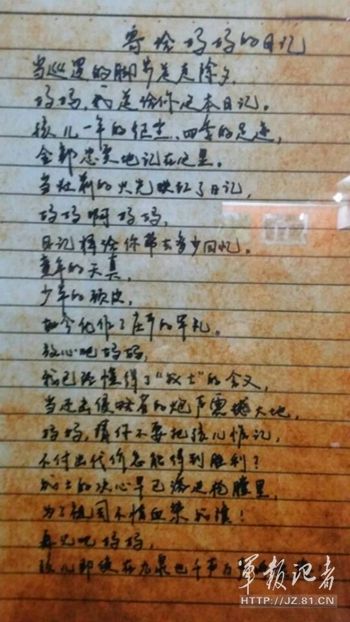 寄给妈妈的日记
当巡逻的脚步走走除夕,
妈妈,我送给你这本日记。
孩儿一年的征尘,四季的足迹,
全部忠实地记在这里。
当灶前的火光映红了日记,
妈妈啊妈妈,
日记将给你带去多少回忆。
童年的天真,
少年的顽皮,
如今化作了庄严的军礼。
放心吧妈妈,
我已经懂得了“战士”的含义,
当还击侵略者的炮声震撼大地,
妈妈,请你不要把孩儿惦记,
不付出代价怎能得到胜利?
战士的决心早已溶进枪膛里,
为了祖国不惜血染的
再见吧妈妈,
孩儿即使在九泉也千声万
軍報記者
HTTP://JZ.81.CN